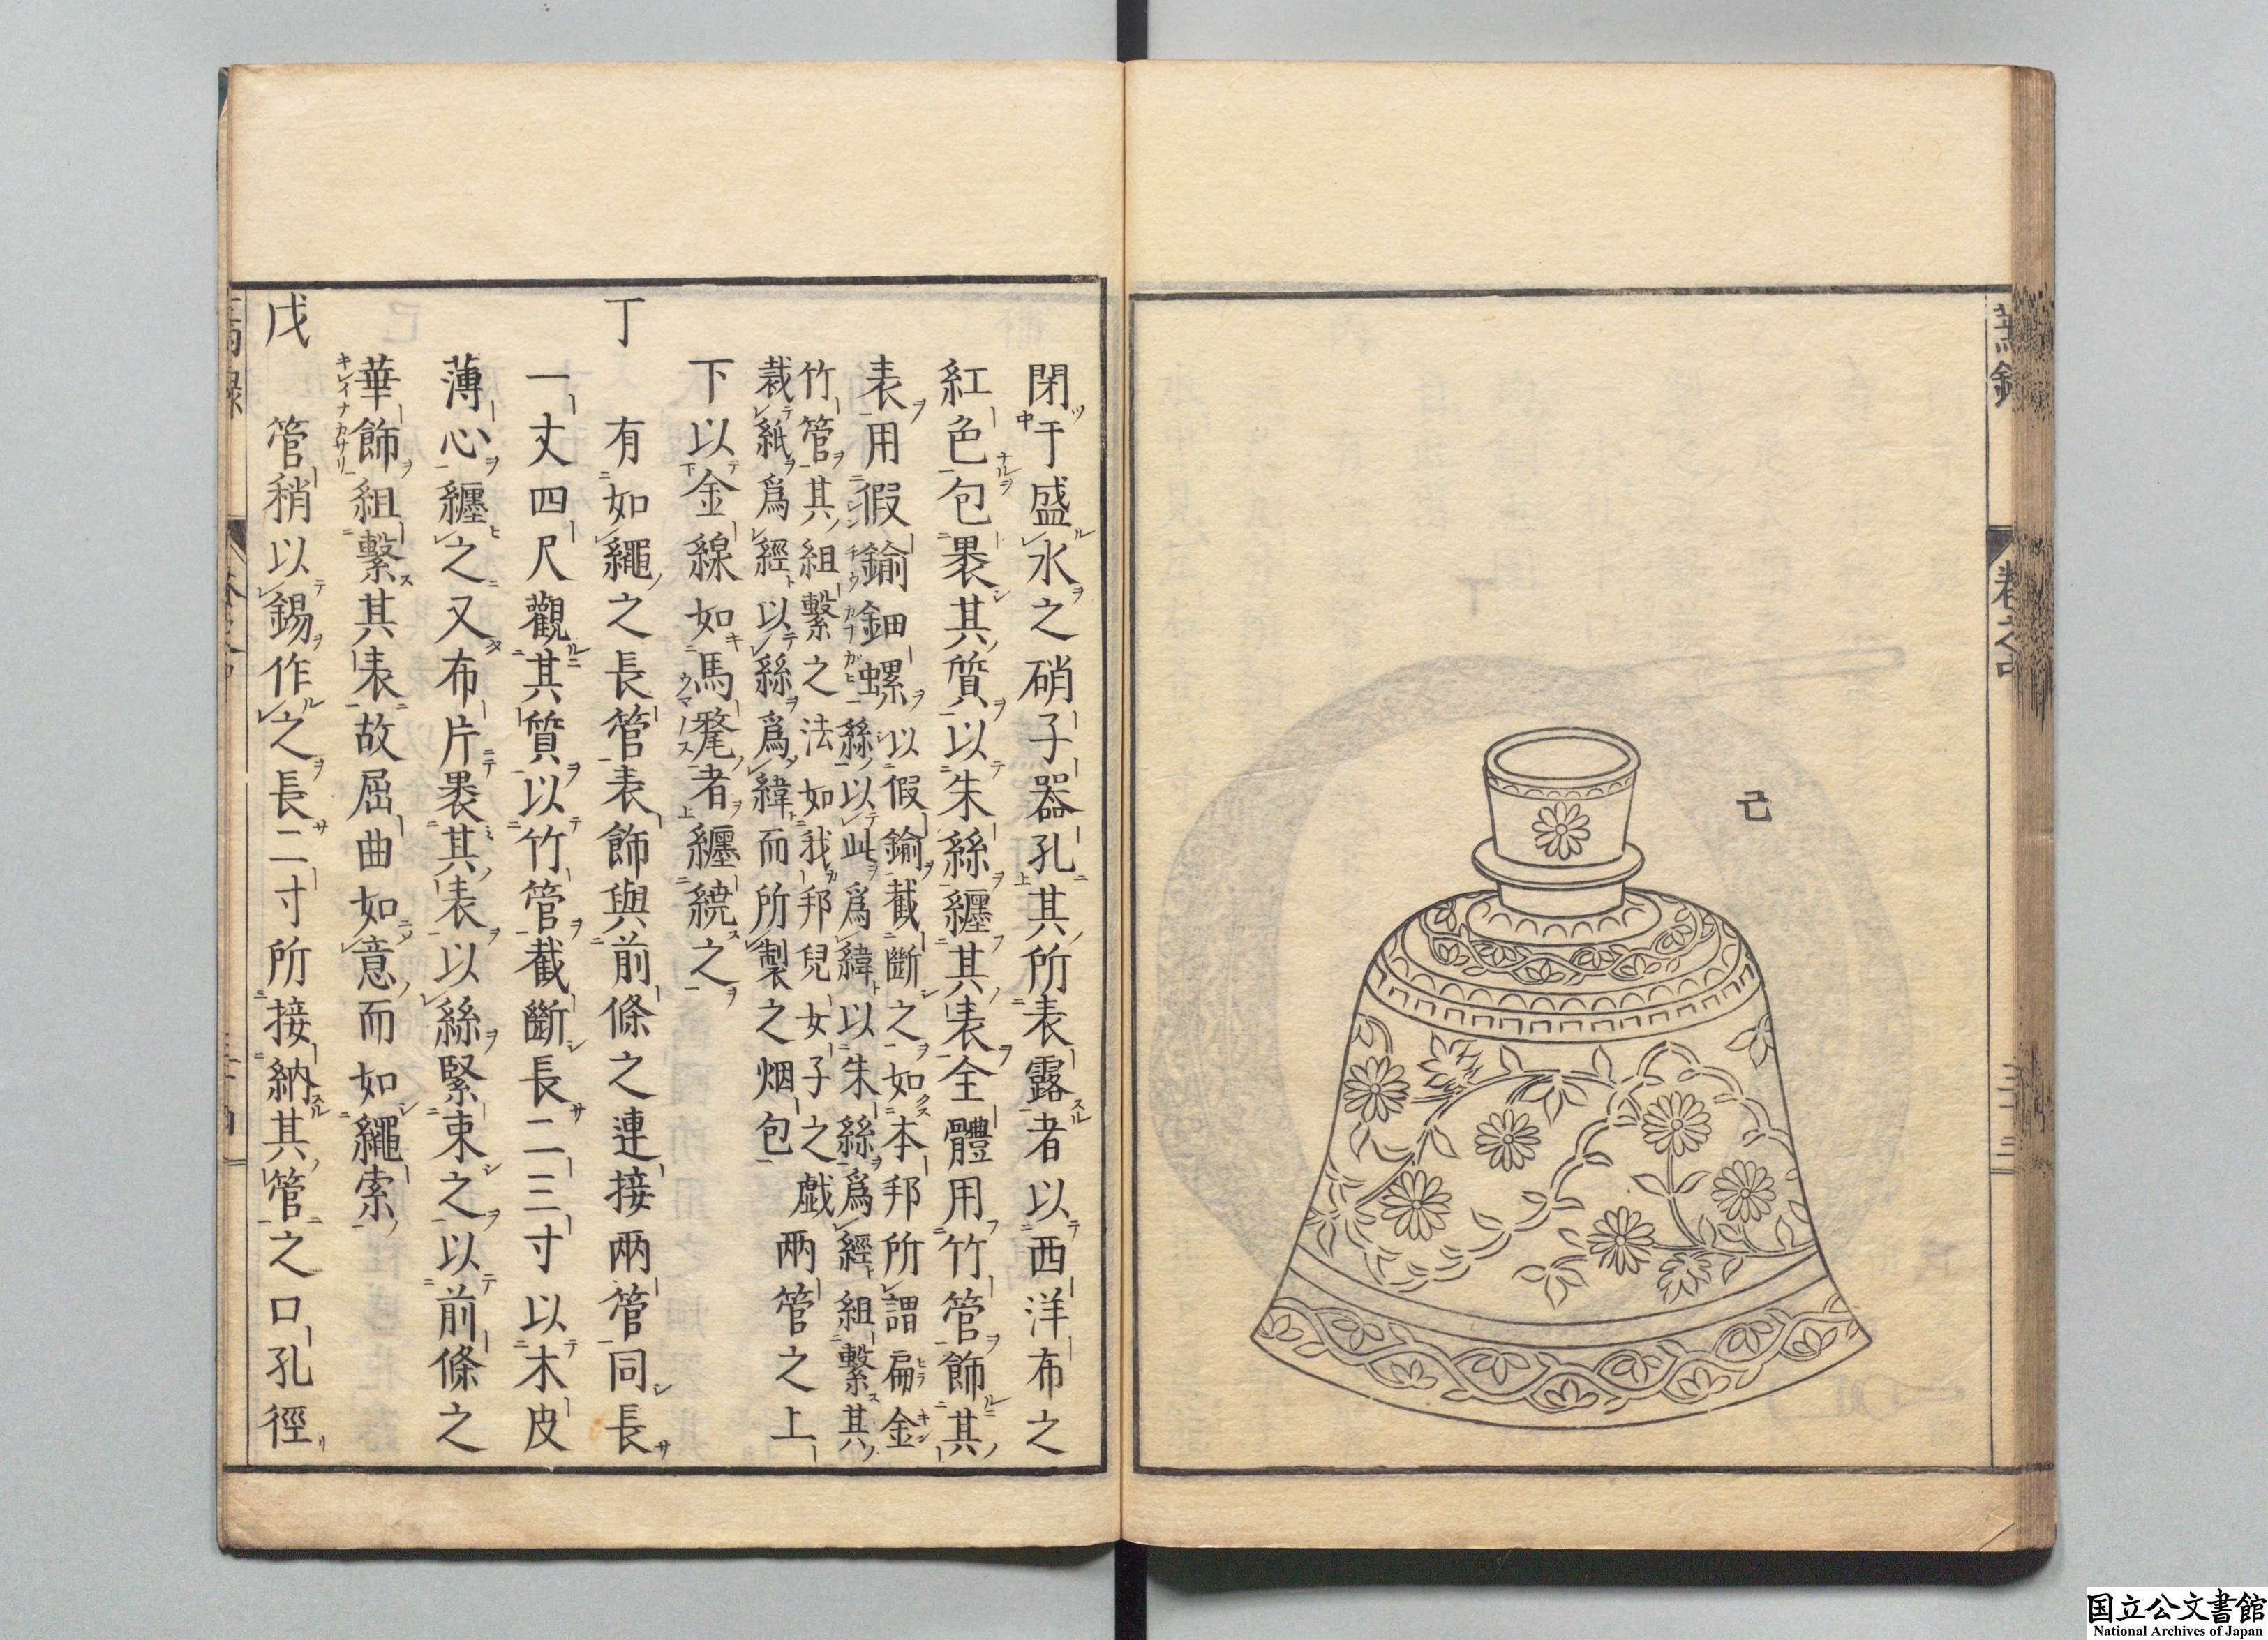 己
卷之中
三十三
閉于盛水之硝子器孔其所表露者以西洋布之
紅色包裹其質以朱絲纏其表全體用竹管飾其
表用假鍮鈿螺
以假鍮截斷之如本邦所謂扁金
絲以此爲緯以朱絲爲經組繫其
竹管其組繫之法如我邦兒女子之戯
裁紙爲經以絲爲緯而所製之烟包
兩管之上
下以金線如馬氂者纏繞之
丁
有如繩之長管表飾與前條之連接兩管同長
一丈四尺觀其質以竹管截斷長二三寸以木皮
薄心纏之又布片裹其表以絲緊束之以前條之
華飾組繫其表故屈曲如意而如繩索
戊
管稍以錫作之長二寸所接納其管之口孔徑
国立公文書館
National Archives of Japan